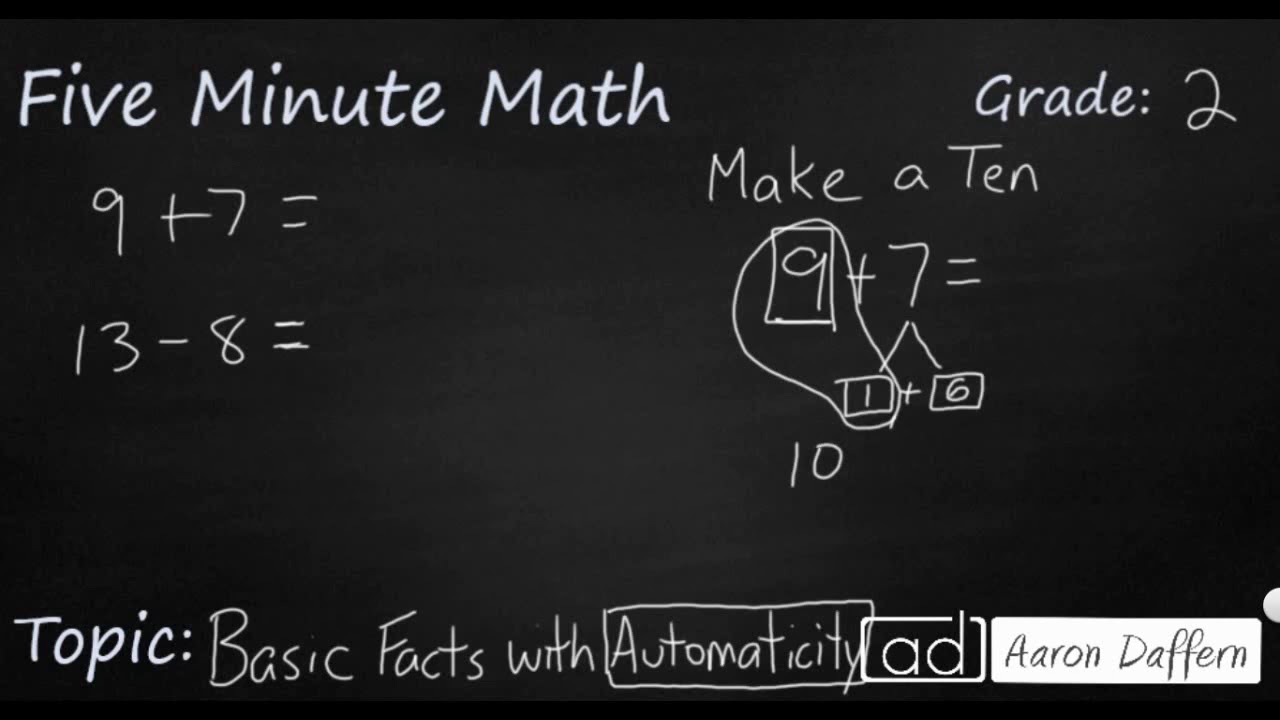 Five Minute Math
Grade: 2
9 + 7 =
13 - 8 =
Make a Ten
9 + 7 =
1 + 6
10
Topic: Basic Facts with Automaticity
ad Aaron Daffern